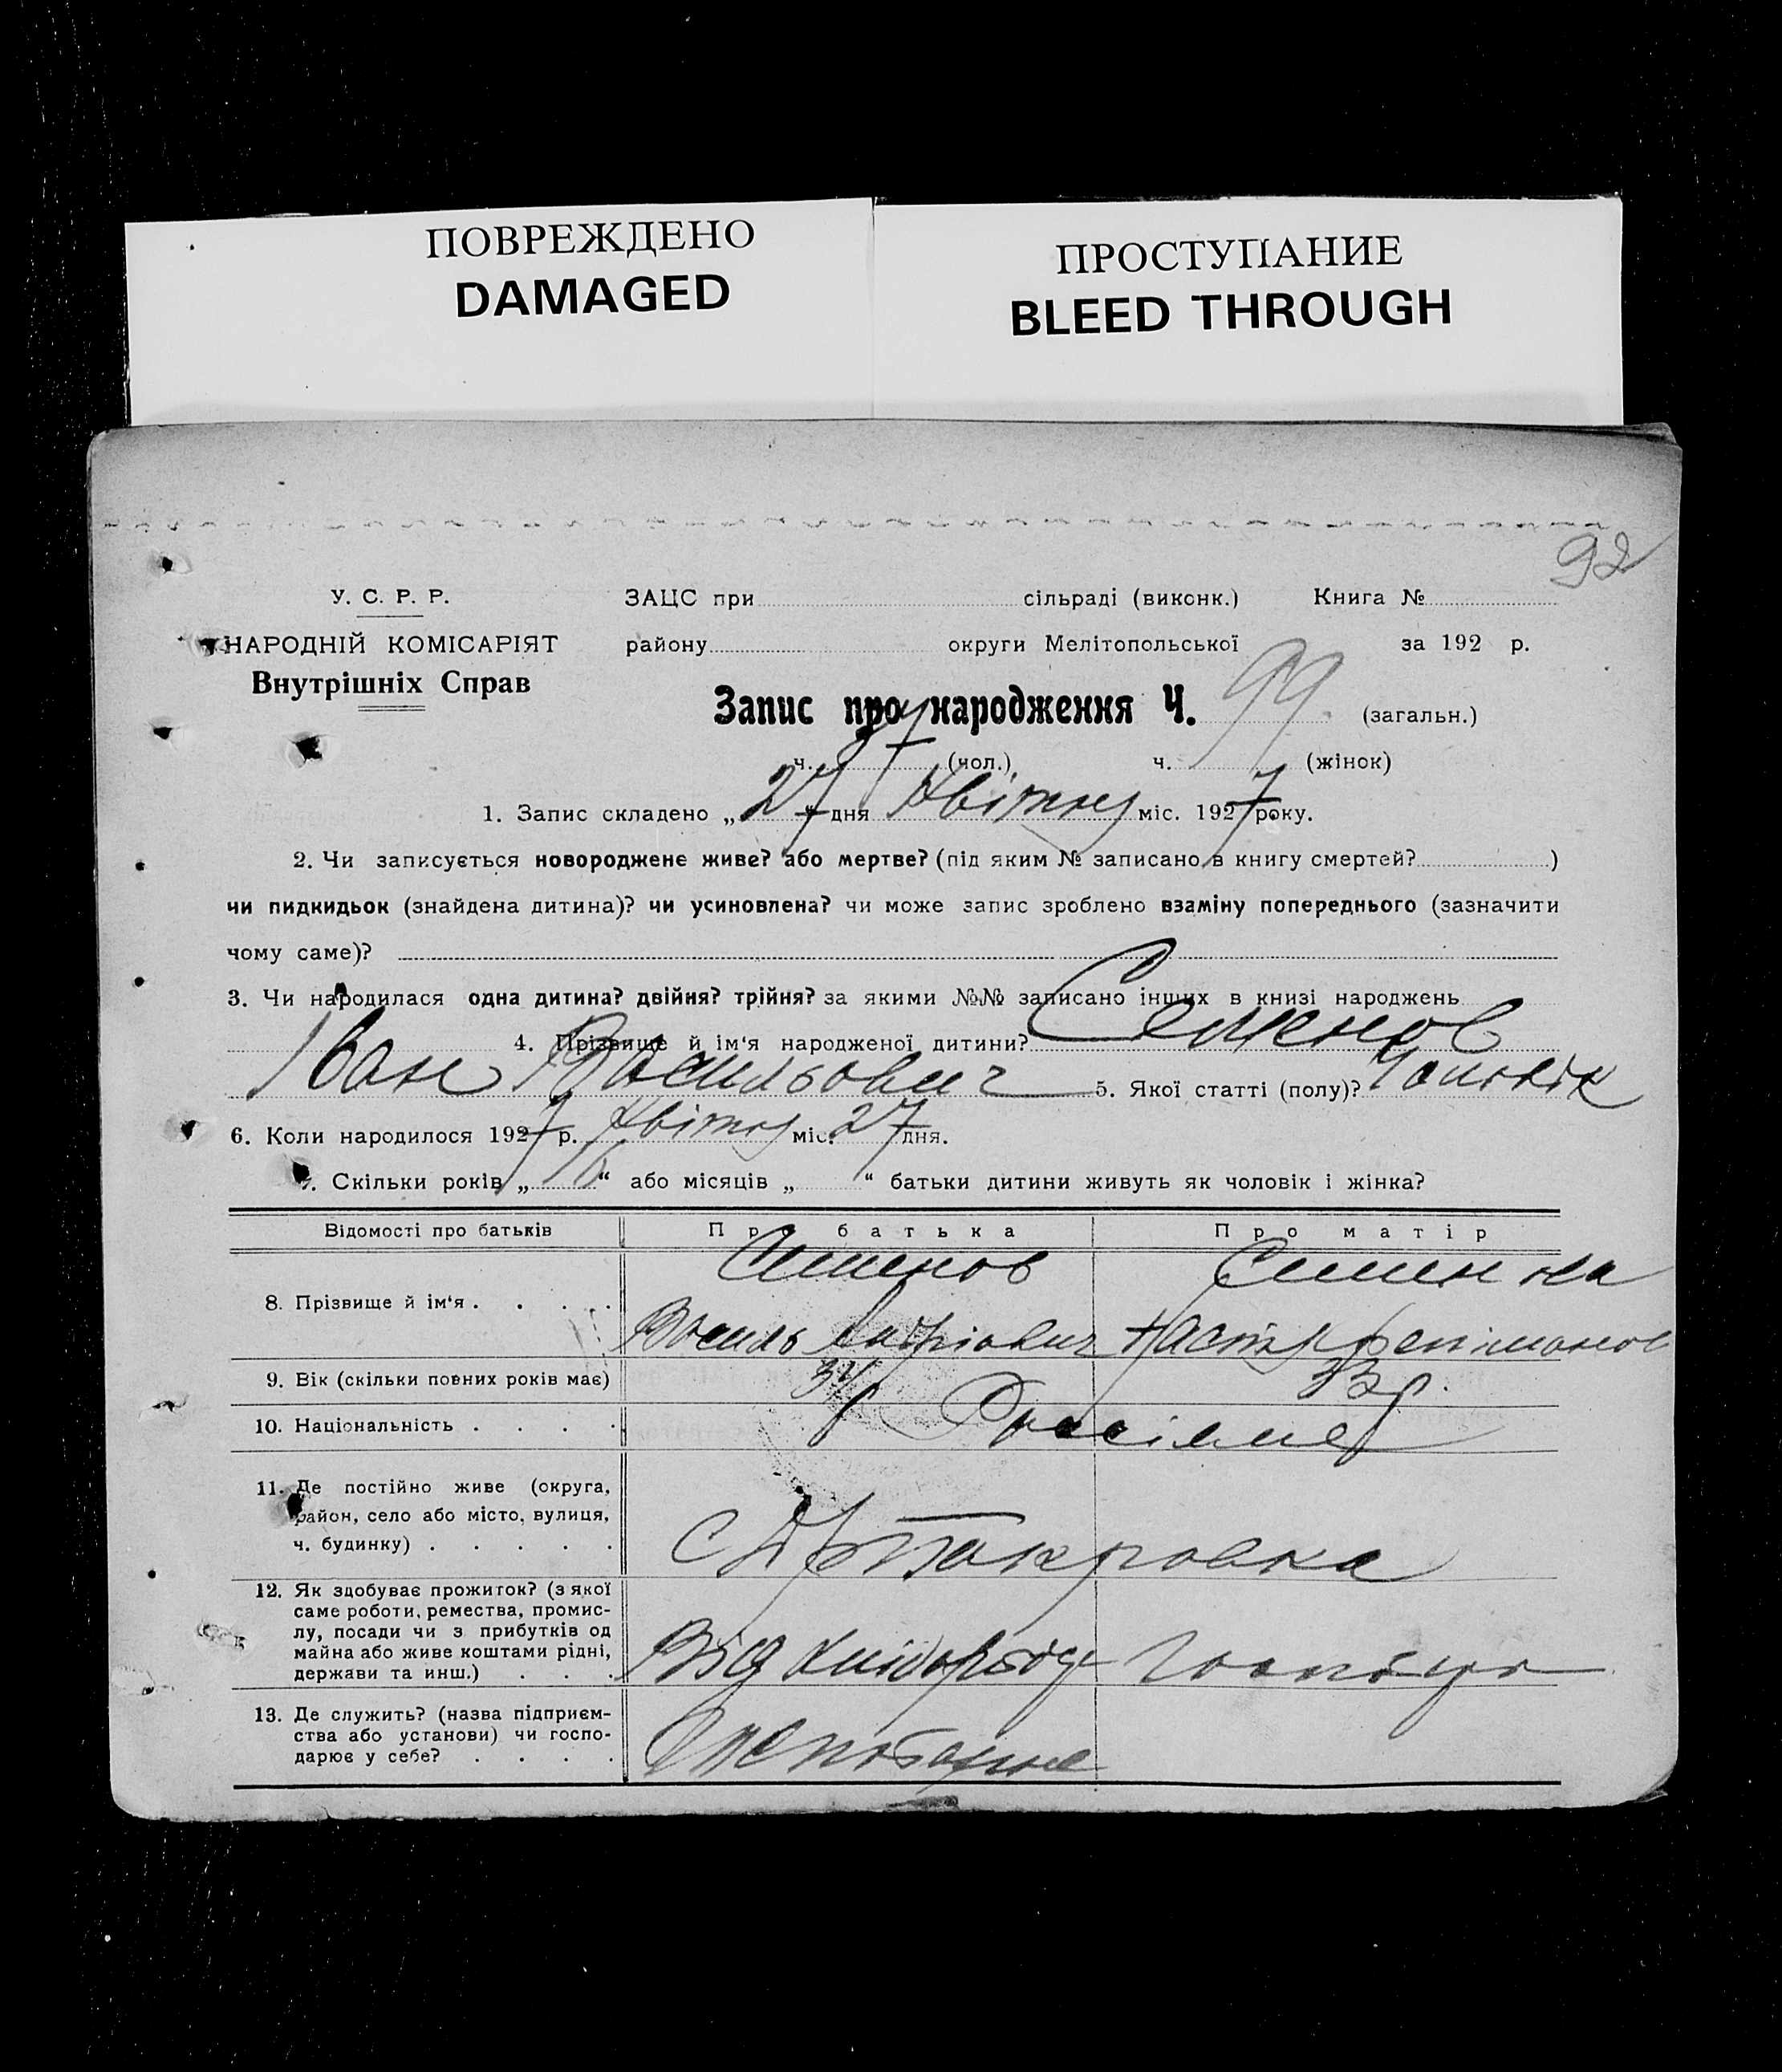 ПОВРЕЖДЕНО
DAMAGED
ПРОСТУПАНИЕ
BLEED THROUGH
92
У. С. Р. Р.
НАРОДНІЙ КОМІСАРІЯТ
Внутрішніх Справ
ЗАЦС при сільраді (виконк.) Книга №
району округи Мелітопольської за 192 р.
Запис про народження Ч. 99 (загальн.)
ч. 57 (чол.) ч. (жінок)
1. Запис складено „27“ дня Квітня міс. 1927 року.
2. Чи записується новороджене живе? або мертве? (під яким № записано в книгу смертей? )
чи пидкидьок (знайдена дитина)? чи усиновлена? чи може запис зроблено взаміну попереднього (зазначити
чому саме)?
3. Чи народилася одна дитина? двійня? трійня? за якими №№ записано інших в книзі народжень
4. Прізвище й ім'я народженої дитини? Семенов
Іван Васильович 5. Якої статті (полу)? Чоловік
6. Коли народилося 1927 р. Квітня міс. 27 дня.
7. Скільки років „ “ або місяців „ “ батьки дитини живуть як чоловік і жінка?
Відомості про батьків Про батька Про матір
8. Прізвище й ім'я . . . . Семенов Семенова
Василь Андріович Настя
9. Вік (скільки повних років має) 34 р 33 р.
10. Національність . . . .
11. Де постійно живе (округа,
район, село або місто, вулиця,
ч. будинку) . . . . . С Покровка
12. Як здобуває прожиток? (з якої
саме роботи, ремества, промис-
лу, посади чи з прибутків од
майна або живе коштами рідні,
держави та инш.) . . . Від хліборобс
13. Де служить? (назва підприєм-
ства або установи) чи госпо-
дарює у себе? . . . .